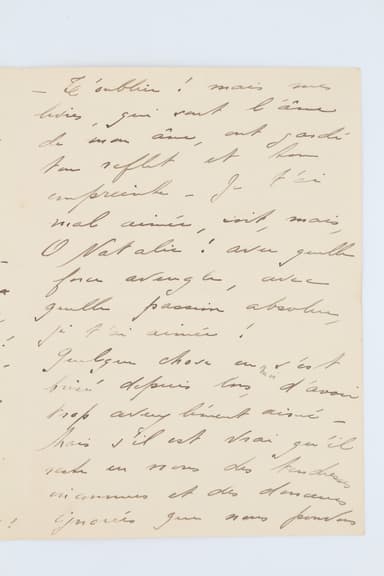 — T'oublier ! mais mes
livres, qui sont l'âme
de mon âme, ont gardé
ton reflet et ton
empreinte — Je t'ai
mal aimée, soit, mais,
O Natalie ! avec quelle
force aveugle, avec
quelle passion absolue,
je t'ai aimée !
Quelque chose en moi s'est
brisé depuis lors, d'avoir
trop aveuglément aimé —
Mais s'il est vrai qu'il
reste en nous des tendresses
inconnues et des douceurs
ignorées que nous pouvons